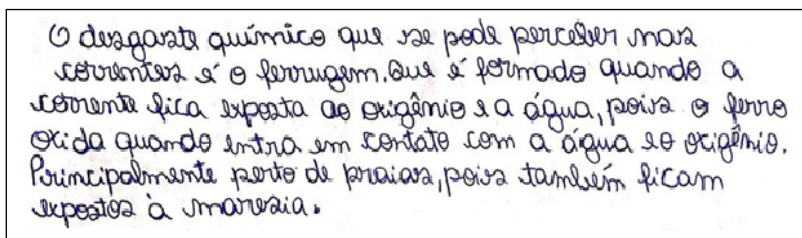 O desgaste químico que se pode perceber nas
correntes é o ferrugem. Que é formado quando a
corrente fica exposta ao oxigênio e a água, pois o ferro
oxida quando entra em contato com a água e o oxigênio.
Principalmente perto de praias, pois também ficam
expostos à maresia.